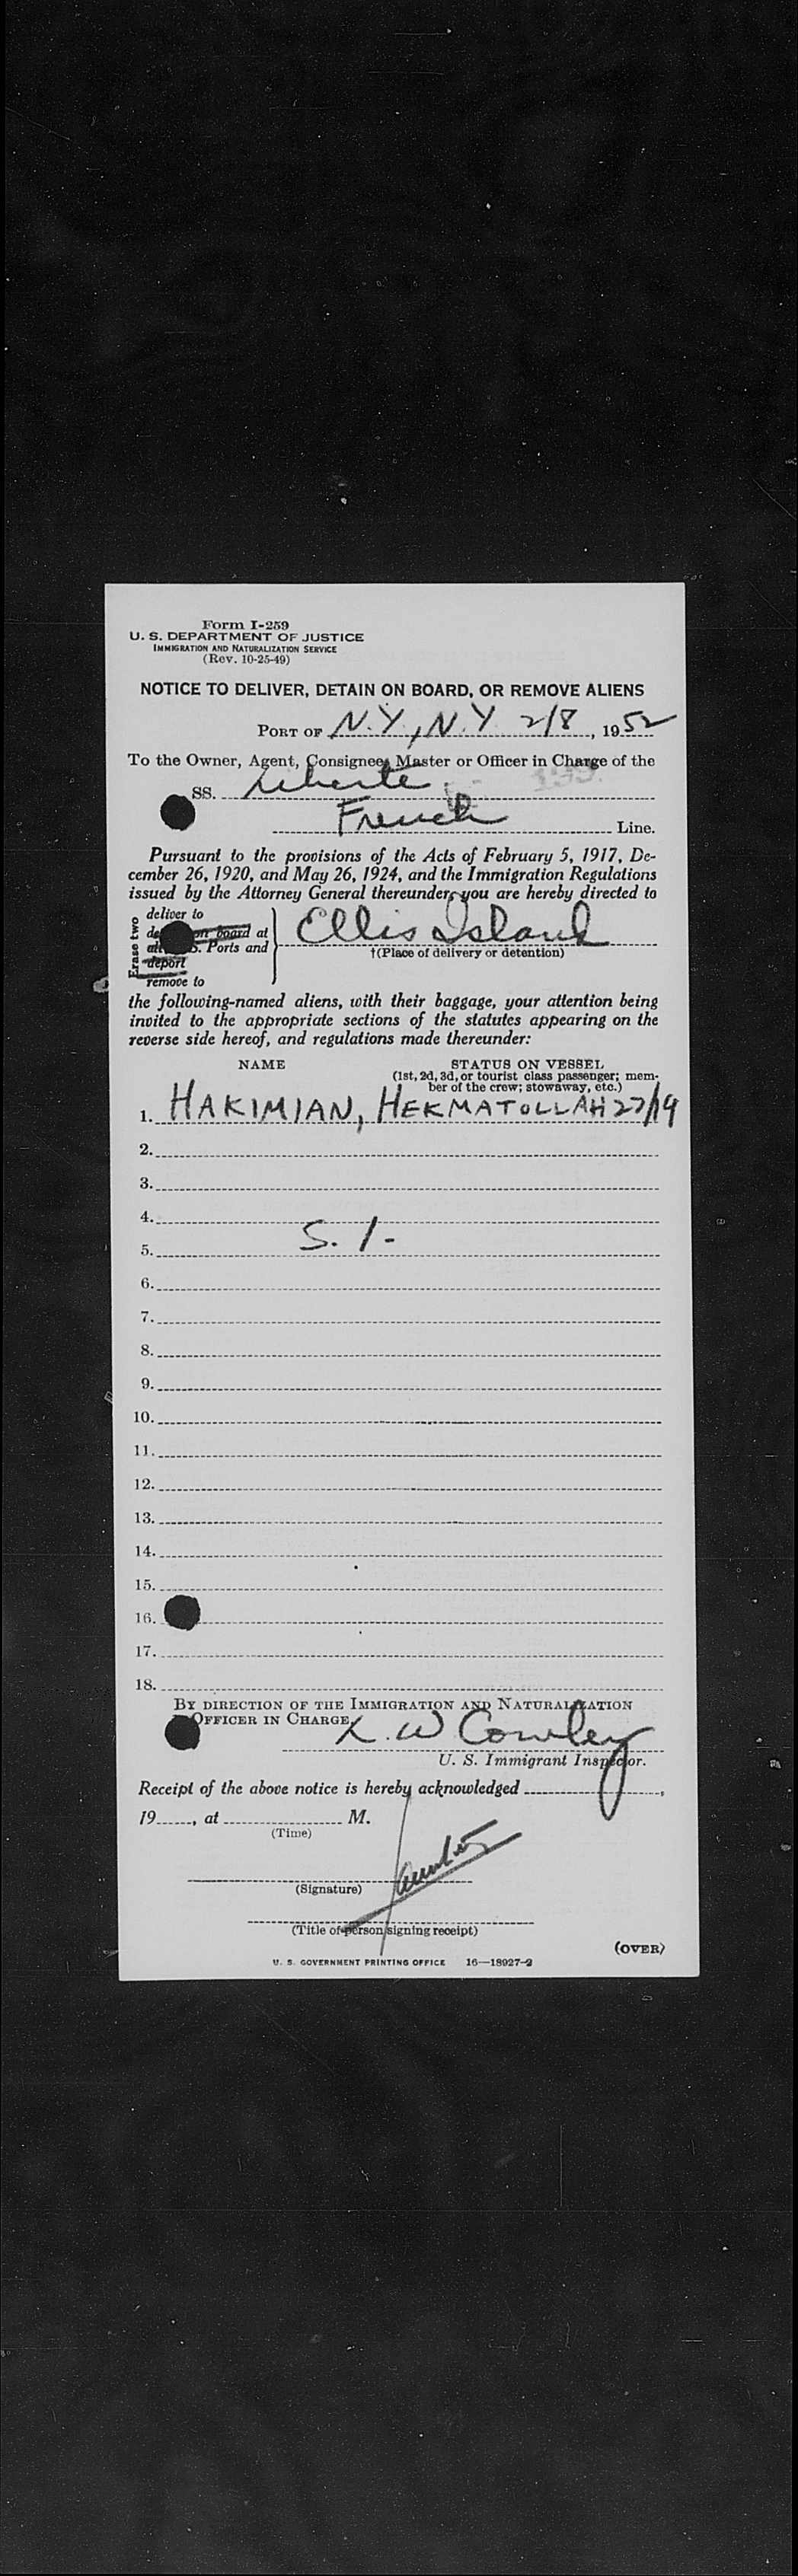 Form I-259
U. S. DEPARTMENT OF JUSTICE
IMMIGRATION AND NATURALIZATION SERVICE
(Rev. 10-25-49)
NOTICE TO DELIVER, DETAIN ON BOARD, OR REMOVE ALIENS
PORT OF N.Y., N.Y. 2/8, 1952
To the Owner, Agent, Consignee, Master or Officer in Charge of the
SS. Liberte
French Line.
Pursuant to the provisions of the Acts of February 5, 1917, De-
cember 26, 1920, and May 26, 1924, and the Immigration Regulations
issued by the Attorney General thereunder, you are hereby directed to
Erase two
deliver to
on board at
S. Ports and
deport
remove to
Ellis Island
†(Place of delivery or detention)
the following-named aliens, with their baggage, your attention being
invited to the appropriate sections of the statutes appearing on the
reverse side hereof, and regulations made thereunder:
NAME STATUS ON VESSEL
(1st, 2d, 3d, or tourist class passenger; mem-
ber of the crew; stowaway, etc.)
1. HAKIMIAN, HEKMATOLLAH 27/19
2.
3.
4.
S. I.
5.
6.
7.
8.
9.
10.
11.
12.
13.
14.
15.
16.
17.
18.
BY DIRECTION OF THE IMMIGRATION AND NATURALIZATION
OFFICER IN CHARGE, L. W Cowley
U. S. Immigrant Inspector.
Receipt of the above notice is hereby acknowledged
19, at M.
(Time)
(Signature)
(Title of person signing receipt)
(OVER)
U. S. GOVERNMENT PRINTING OFFICE 16—18927-2